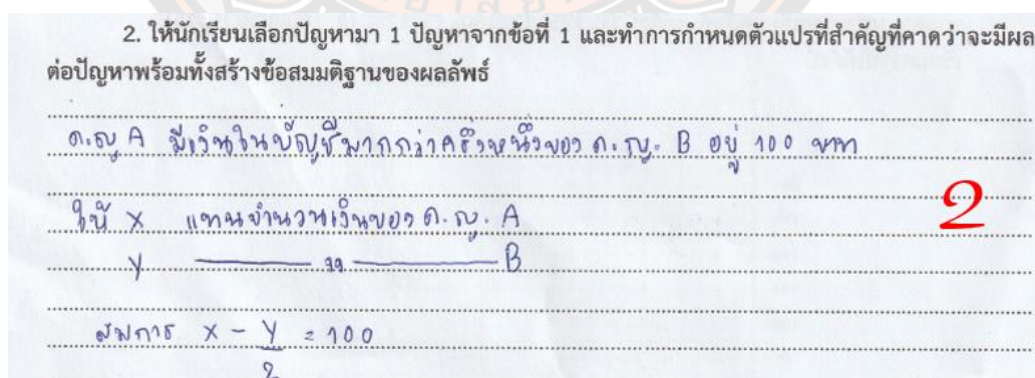 2. ให้นักเรียนเลือกปัญหามา 1 ปัญหาจากข้อที่ 1 และทำการกำหนดตัวแปรที่สำคัญที่คาดว่าจะมีผล
ต่อปัญหาพร้อมทั้งสร้างข้อสมมติฐานของผลลัพธ์
ด.ญ A มีเงินในบัญชีมากกว่าครึ่งหนึ่งของ ด.ญ. B อยู่ 100 บาท
ให้ X แทนจำนวนเงินของ ด.ญ. A
2
y ——— " ——— B
สมการ x - y/2 = 100